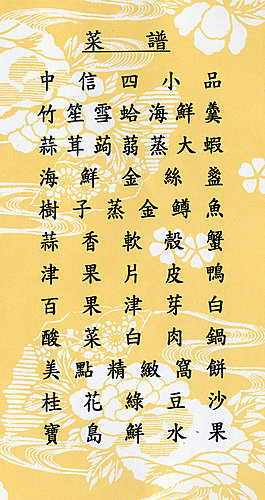 菜譜
中信四小品
竹笙雪蛤海鮮羹
蒜茸蒟蒻蒸大蝦
海鮮金絲盞
樹子蒸金鱒魚
蒜香軟殼蟹
津果片皮鴨
百果津芽白
酸菜白肉鍋
美點精緻窩餅
桂花綠豆沙
寶島鮮水果